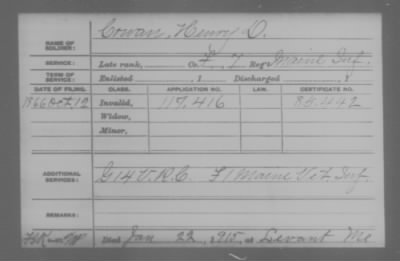 NAME OF SOLDIER: Cowan, Henry D.
SERVICE: Late rank, Co. F, 7 Reg't Maine Inf.
TERM OF SERVICE: Enlisted , 1 Discharged , 1
DATE OF FILING. CLASS. APPLICATION NO. LAW. CERTIFICATE NO.
1866 Oct. 12 Invalid, 117,416
Widow,
Minor,
ADDITIONAL SERVICES: G 14 V.R.C. F 1 Maine Vet Inf.
REMARKS:
Died Jan 22, 1915, at Levant Me